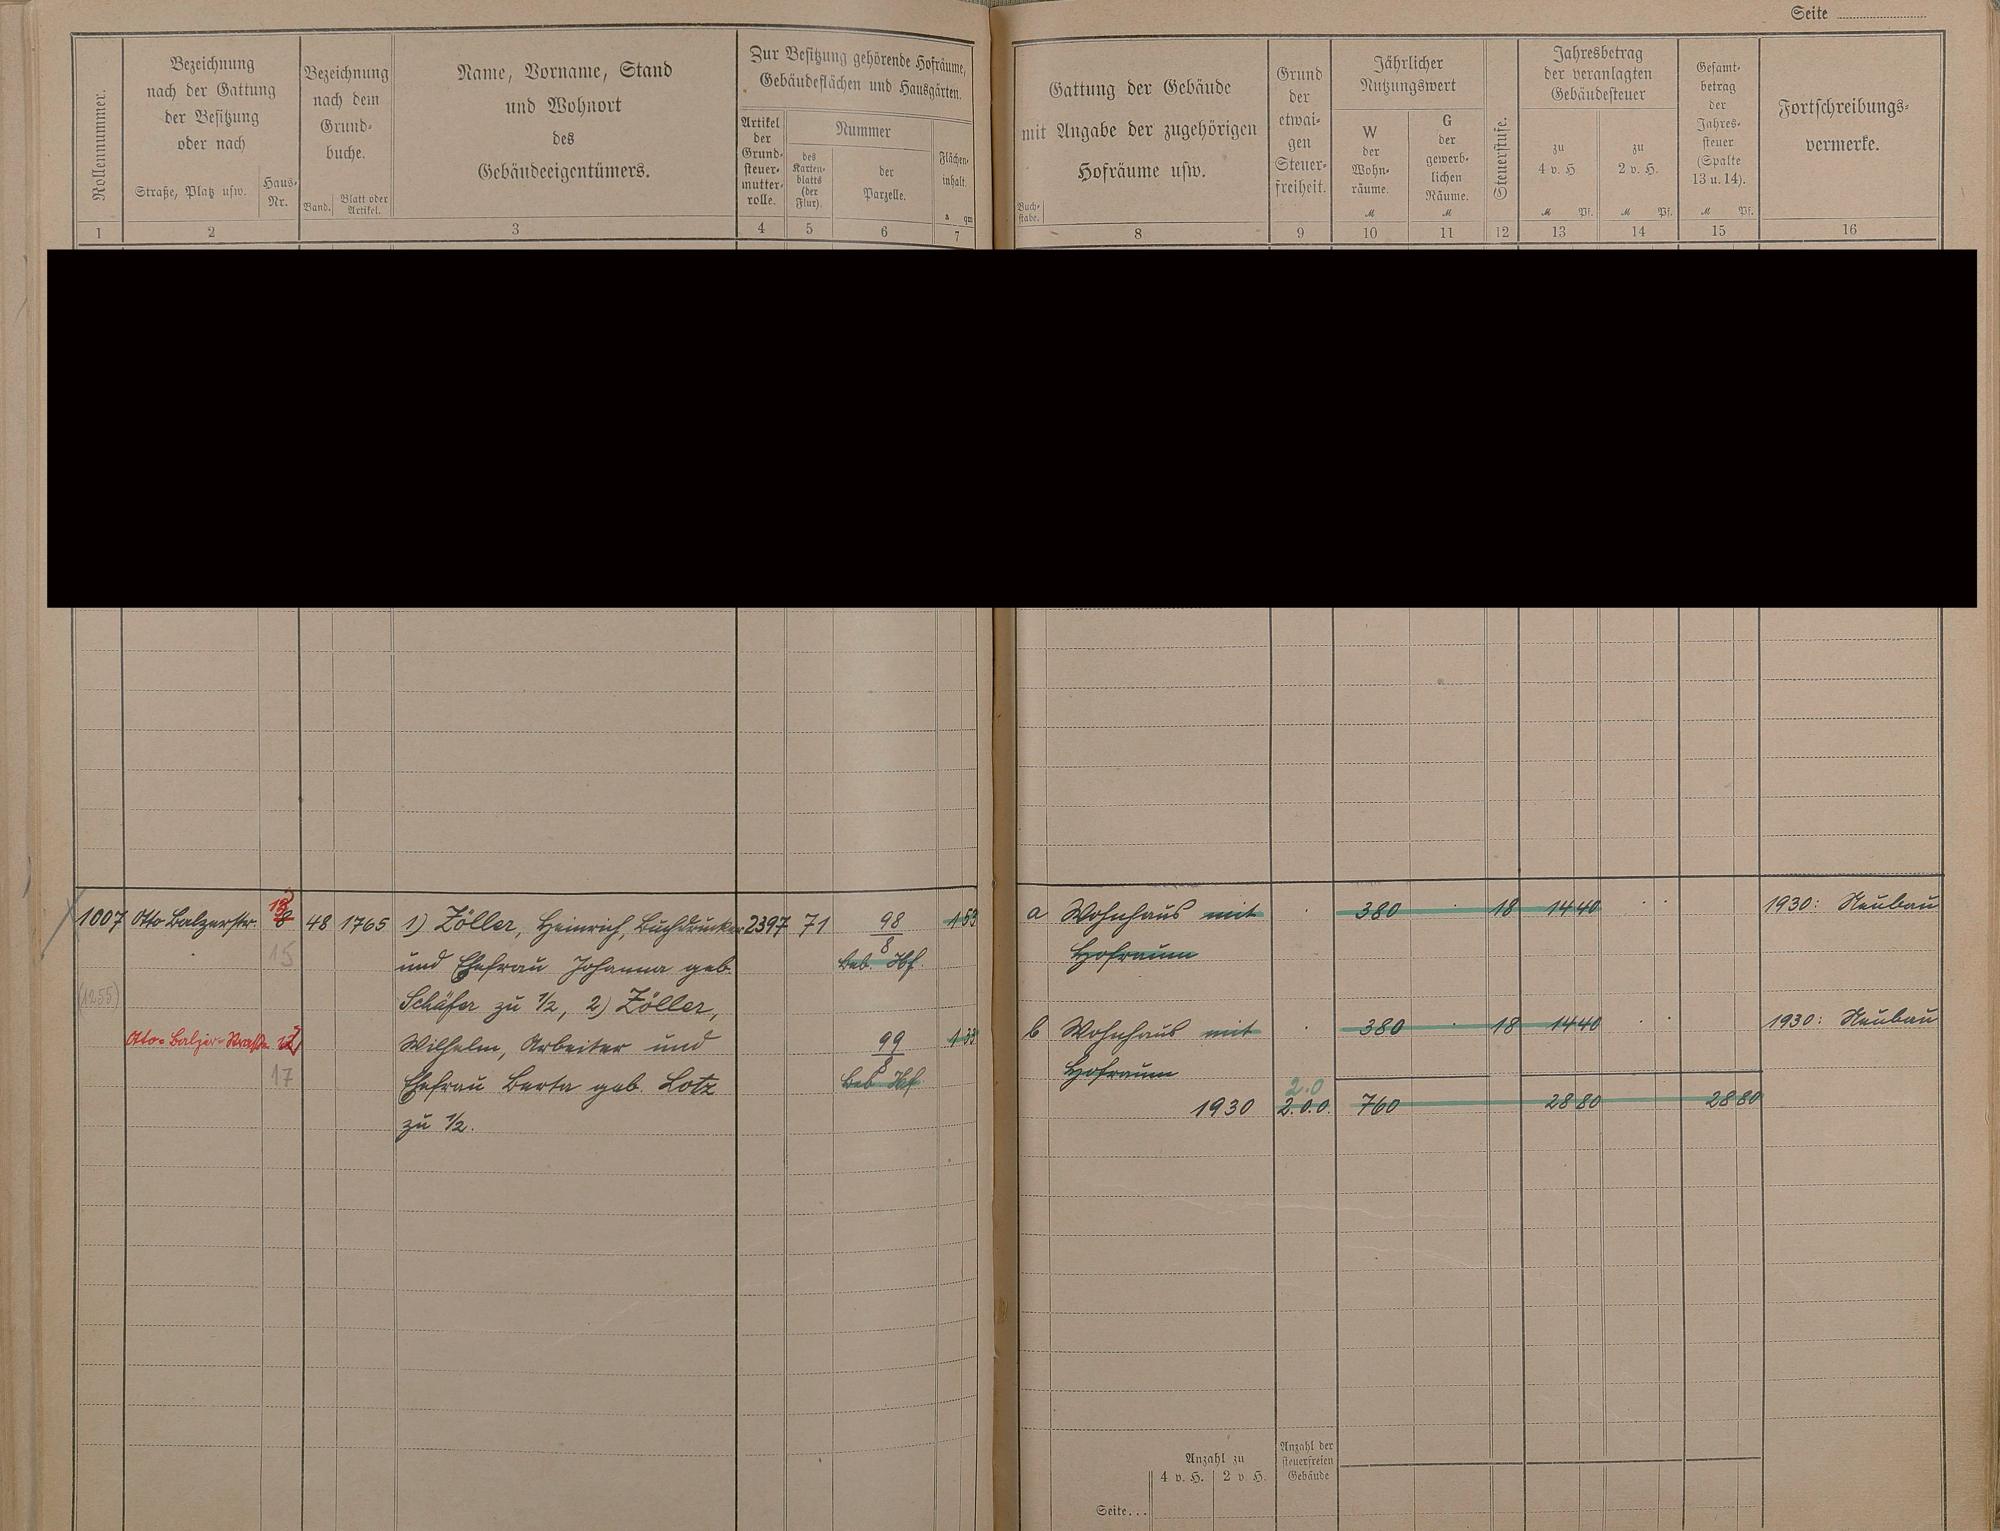 Seite
Rollennummer.
Bezeichnung
nach der Gattung
der Besitzung
oder nach
Straße, Platz usw.
Haus-
Nr.
Bezeichnung
nach dem
Grund-
buche.
Band.
Blatt oder
Artikel.
Name, Vorname, Stand
und Wohnort
des
Gebäudeeigentümers.
Zur Besitzung gehörende Hofräume,
Gebäudeflächen und Hausgärten.
Artikel
der
Grund-
steuer-
mutter-
rolle.
Nummer
des
Karten-
blatts
(der
Flur).
der
Parzelle.
Flächen-
inhalt.
a qm
Gattung der Gebäude
mit Angabe der zugehörigen
Hofräume usw.
Buch-
stabe.
Grund
der
etwai-
gen
Steuer-
freiheit.
Jährlicher
Nutzungswert
W
der
Wohn-
räume.
M
G
der
gewerb-
lichen
Räume.
M
Steuerstufe.
Jahresbetrag
der veranlagten
Gebäudesteuer
zu
4 v. H.
M Pf.
zu
2 v. H.
M Pf.
Gesamt-
betrag
der
Jahres-
steuer
(Spalte
13 u. 14).
M Pf.
Fortschreibungs-
vermerke.
1 2 3 4 5 6 7 8 9 10 11 12 13 14 15 16
1007 Otto Balzerstr. 8 48 1765 1) Zöller, Heinrich, Buchdrucker 2397 71 98/8 1 53 a Wohnhaus mit 380 18 14 40 1930: Neubau
15 und Ehefrau Johanna geb. Geb. Hf. Hofraum
(1255) Schäfer zu 1/2, 2) Zöller,
Otto-Balzer-Straße Wilhelm, Arbeiter und 99/8 1 33 b Wohnhaus mit 380 18 14 40 1930: Neubau
17 Ehefrau Berta geb. Lotz Geb. Hf. Hofraum
2.0
zu 1/2. 1930 2.0.0. 760 28 80 28 80
Anzahl zu
4 v. H. 2 v. H.
Anzahl der
steuerfreien
Gebäude
Seite...